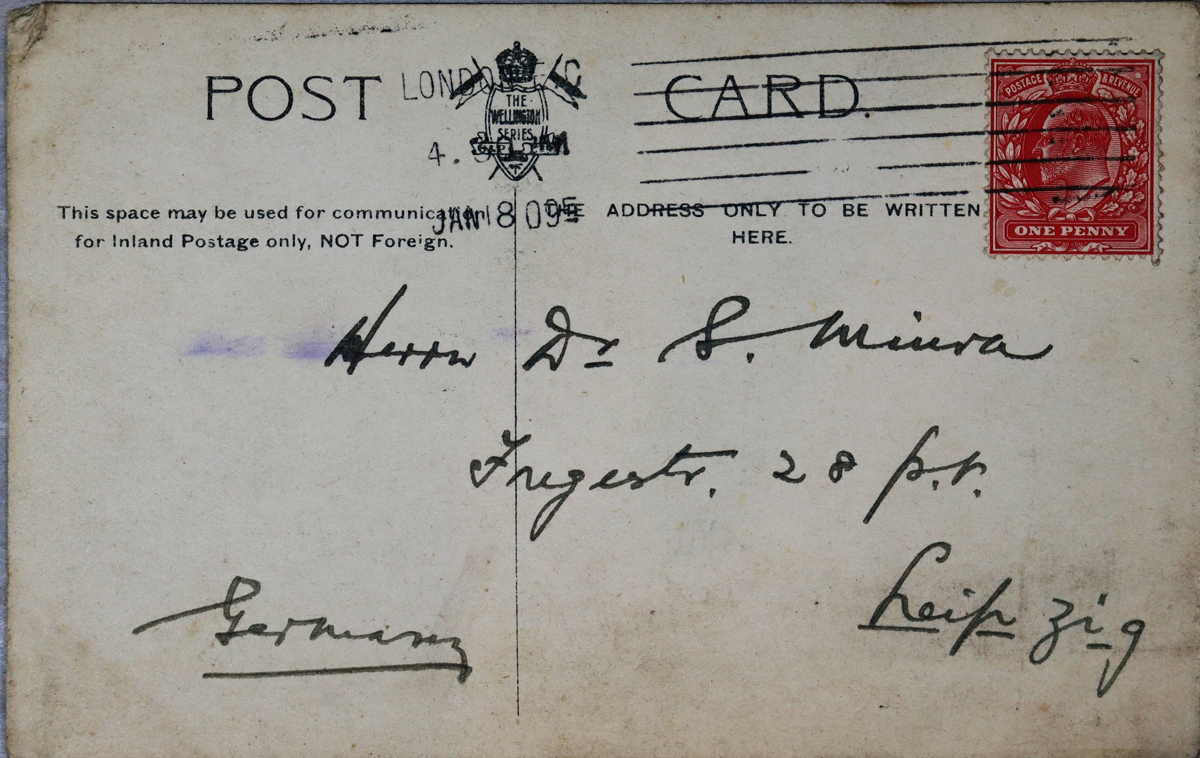 POST CARD.
LONDON E.C
THE
WELLINGTON
SERIES
4.
JAN 8 09
POSTAGE & REVENUE
ONE PENNY
This space may be used for communication THE ADDRESS ONLY TO BE WRITTEN
for Inland Postage only, NOT Foreign. HERE.
Herrn Dr S. Miura
Fregestr. 28 p.r.
Leipzig
Germany